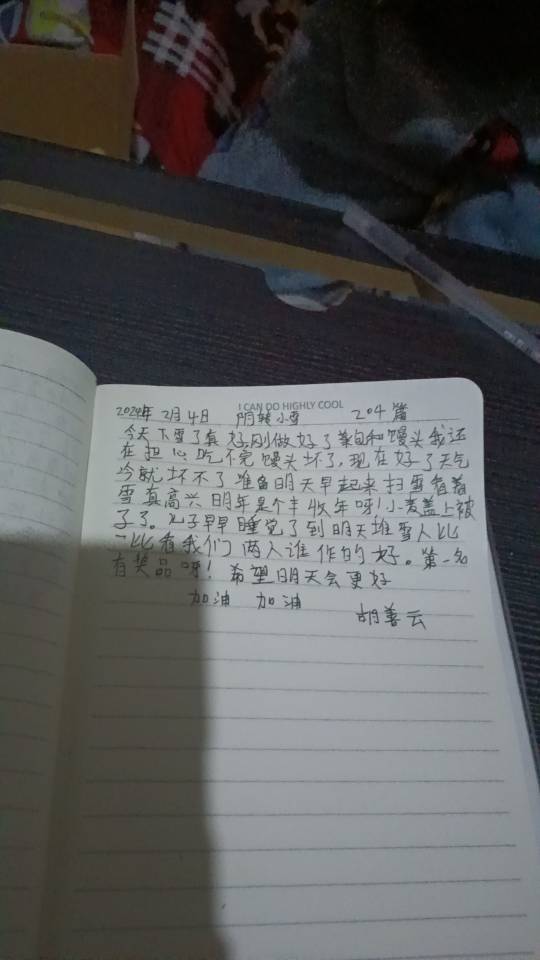 I CAN DO HIGHLY COOL
2024年 2月4日 阴转小雪 204篇
今天下雪了真好,刚做好了菜包和馒头我还
在担心吃不完馒头坏了,现在好了天气
冷就坏不了准备明天早起来扫雪看着
雪真高兴明年是个丰收年呀!小麦盖上被
子了。儿子早早睡觉了到明天堆雪人比
一比看我们两人谁作的好。第一名
有奖品呀!希望明天会更好
加油 加油
胡善云